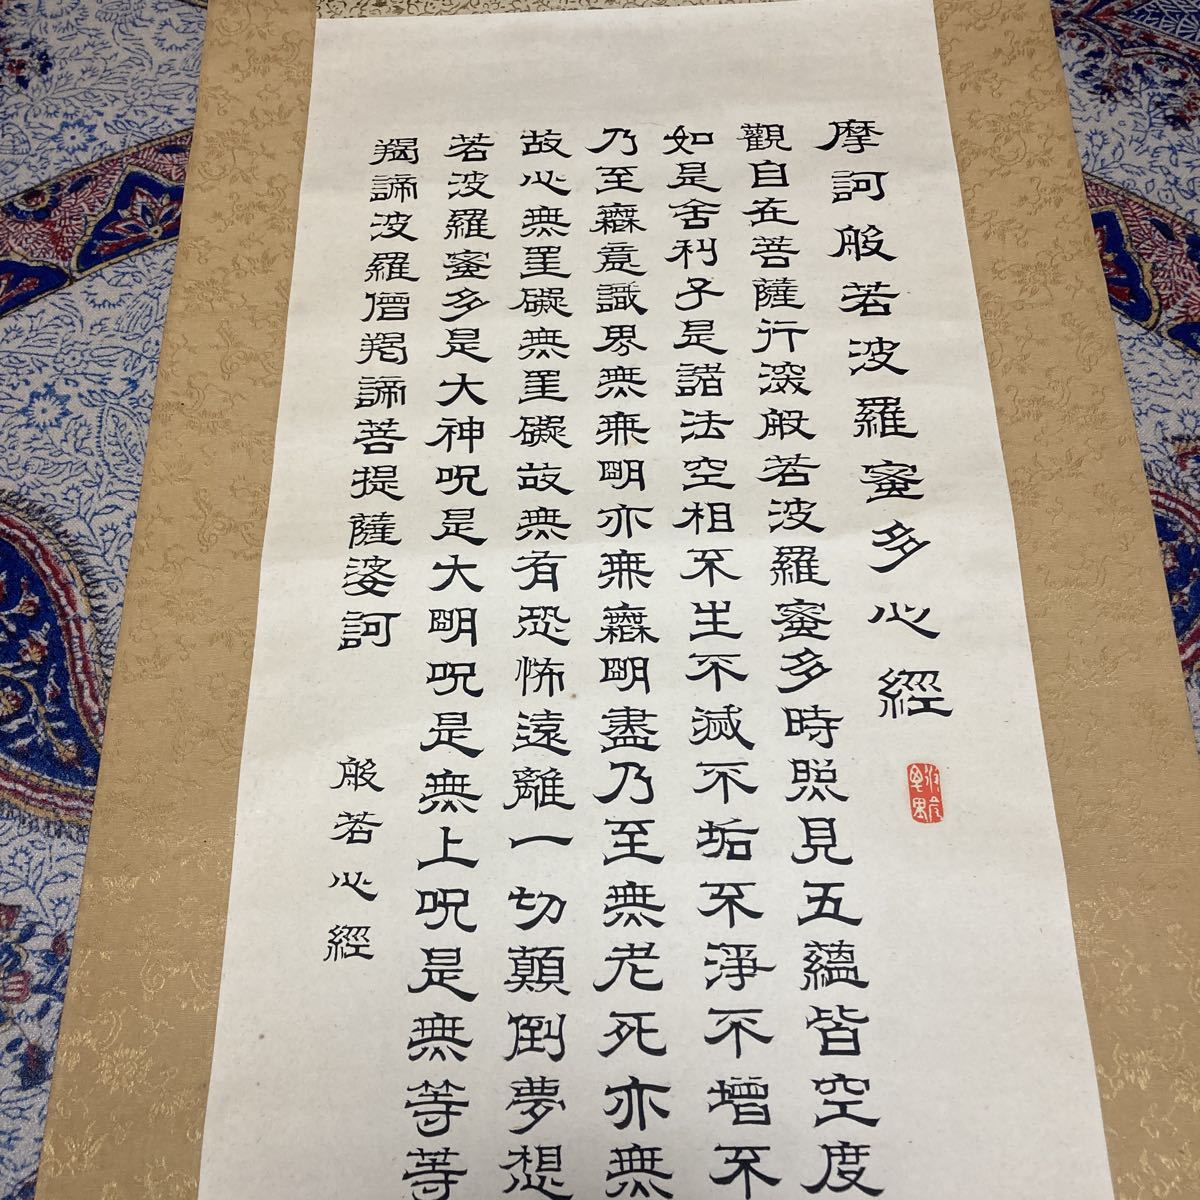 摩訶般若波羅蜜多心經
觀自在菩薩行深般若波羅蜜多時照見五蘊皆空度
如是舍利子是諸法空相不生不滅不垢不淨不增不
乃至無意識界無無明亦無無明盡乃至無老死亦無
故心無罣礙無罣礙故無有恐怖遠離一切顛倒夢想
若波羅蜜多是大神呪是大明呪是無上呪是無等等
羯諦波羅僧羯諦菩提薩婆訶
般若心經